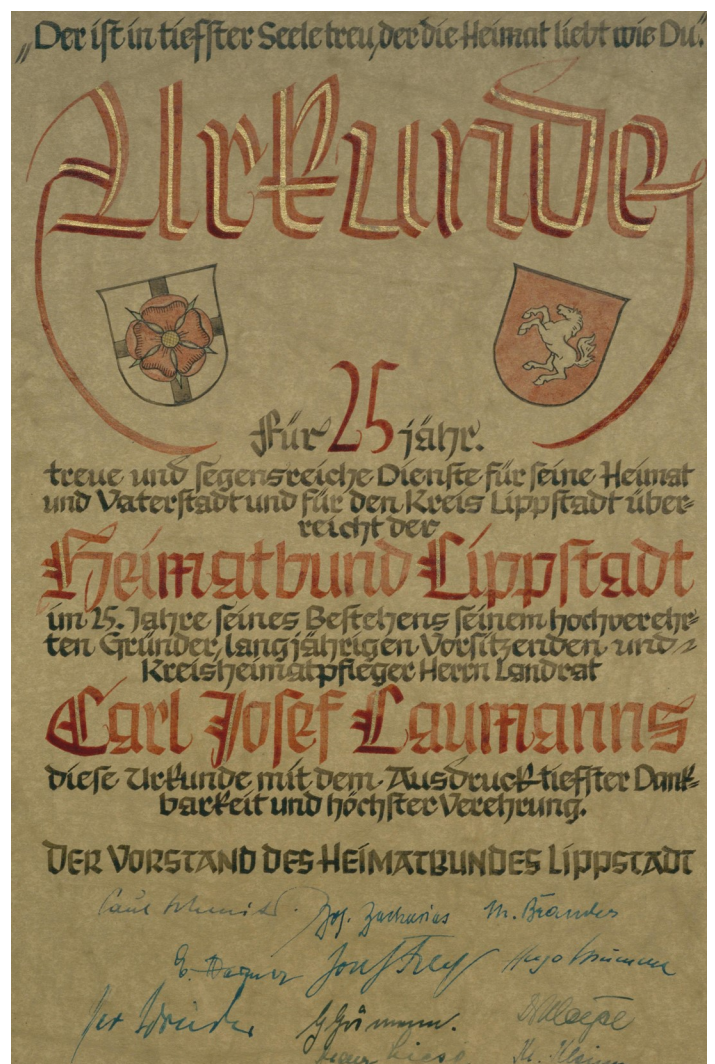 „Der ist in tiefster Seele treu, der die Heimat liebt wie Du“.
Urkunde
Für 25 jähr.
treue und segensreiche Dienste für seine Heimat
und Vaterstadt und für den Kreis Lippstadt über-
reicht der
Heimatbund Lippstadt
im 25. Jahre seines Bestehens seinem hochverehr-
ten Gründer, langjährigen Vorsitzenden und
Kreisheimatpfleger Herrn Landrat
Carl Josef Laumanns
diese Urkunde mit dem Ausdruck tiefster Dank-
barkeit und höchster Verehrung.
DER VORSTAND DES HEIMATBUNDES LIPPSTADT
Jos. Zacharias M. Brandes
E. Wagner